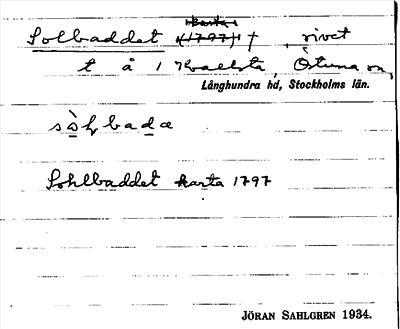 Solbaddet karta (1797) † rivet
t å i Kvallsta, Ötuna sn,
Långhundra hd, Stockholms län.
sòlbada
Sohlbaddet karta 1797
JÖRAN SAHLGREN 1934.